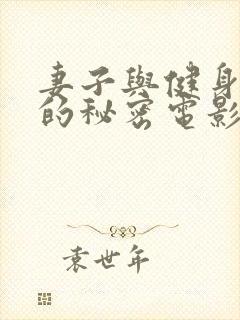 妻子與健身
的秘密電影
袁世年